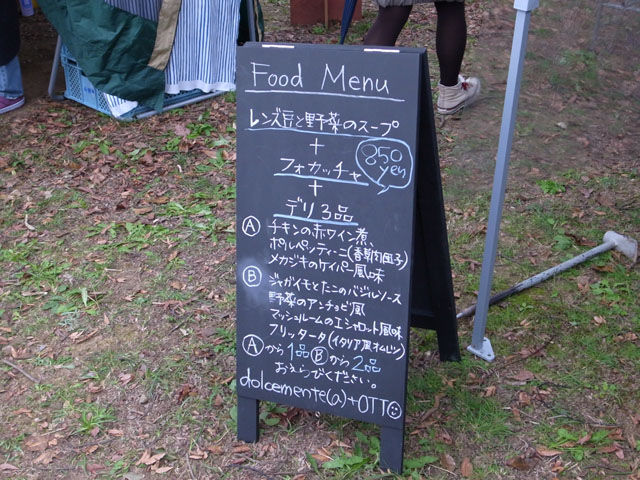 Food Menu
レンズ豆と野菜のスープ
+
フォカッチャ
850
yen
+
デリ3品
Ⓐ チキンの赤ワイン煮、
ポルペッティーニ(香草肉団子)
メカジキのケイパー風味
Ⓑ ジャガイモとたこのバジルソース
野菜のアンチョビ風
マッシュルームのエシャロット風味
フリッタータ(イタリア風オムレツ)
Ⓐから1品Ⓑから2品
おえらびください。
dolcemente(a)+OTTO